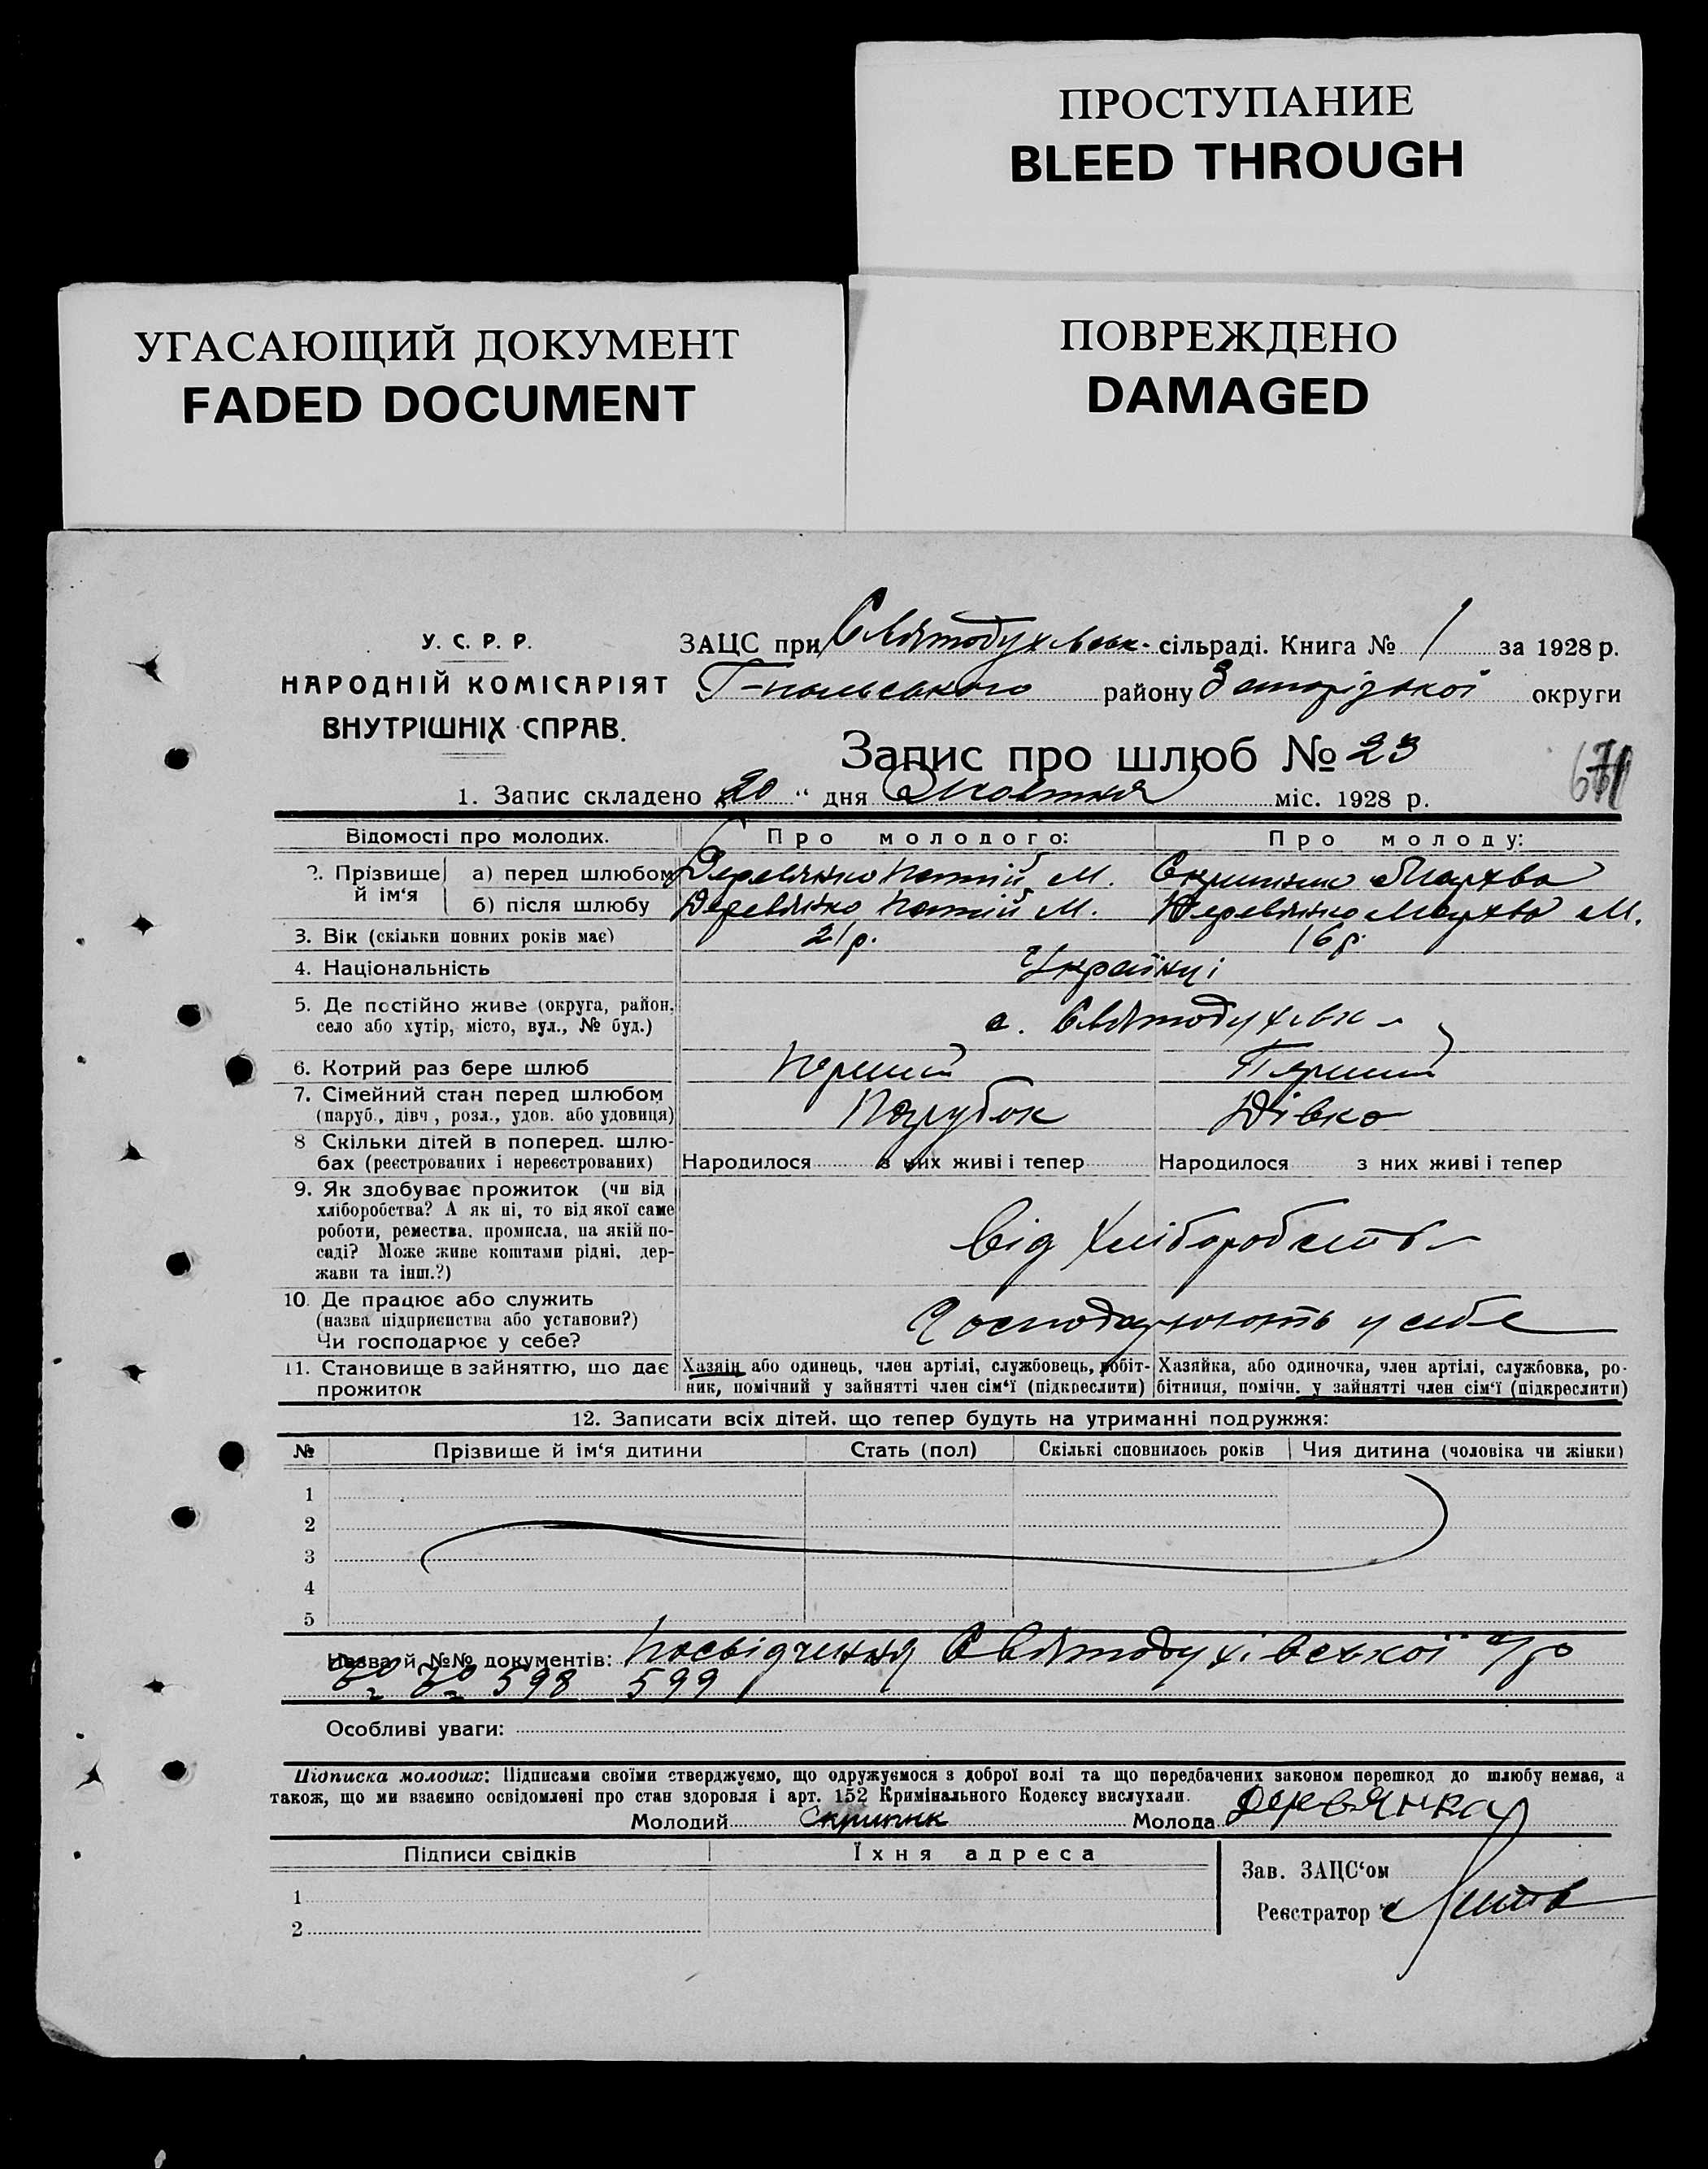 ПРОСТУПАНИЕ
BLEED THROUGH
УГАСАЮЩИЙ ДОКУМЕНТ
FADED DOCUMENT
ПОВРЕЖДЕНО
DAMAGED
У. С. Р. Р.
НАРОДНІЙ КОМІСАРІЯТ
ВНУТРІШНІХ СПРАВ.
ЗАЦС при Святодухівськ- сільраді. Книга № 1 за 1928 р.
району Запорізької округи
Запис про шлюб № 23
1. Запис складено „20“ дня Жовтня міс. 1928 р.
Відомості про молодих. Про молодого: Про молоду:
2. Прізвище й ім‘я а) перед шлюбом Деревянко М. Скрипник Мархва
б) після шлюбу Деревянко М. Деревянко Мархва М.
3. Вік (скільки повних років має) 21 р. 16 р.
4. Національність Українці
5. Де постійно живе (округа, район, село або хутір, місто, вул., № буд.) с. Святодухівк
6. Котрий раз бере шлюб Перший Перший
7. Сімейний стан перед шлюбом (паруб., дівч., розл., удов. або удовиця) Парубок Дівка
8 Скільки дітей в поперед. шлюбах (реєстрованих і нереєстрованих) Народилося з них живі і тепер Народилося з них живі і тепер
9. Як здобуває прожиток (чи від
хліборобства? А як ні, то від якої саме
роботи, ремества, промисла, на якій по-
саді? Може живе коштами рідні, дер-
жави та інш.?)
Від хліборобства
10. Де працює або служить
(назва підприєнства або установи?)
Чи господарює у себе?
Господарюють у себе
11. Становище в зайняттю, що дає прожиток
Хазяїн або одинець, член артілі, службовець, робіт-
ник, помічний у зайнятті член сім‘ї (підкреслити)
Хазяйка, або одиночка, член артілі, службовка, ро-
бітниця, помічн. у зайнятті член сім‘ї (підкреслити)
12. Записати всіх дітей, що тепер будуть на утриманні подружжя:
№ Прізвище й ім‘я дитини Стать (пол) Скількі сповнилось років Чия дитина (чоловіка чи жінки)
1
2
3
4
5
Назва й №№ документів: Посвідчення Святодухівської с/р
№ № 598 599
Особливі уваги:
Підписка молодих: Підписами своїми стверджуємо, що одружуємося з доброї волі та що передбачених законом перешкод до шлюбу немає, а
також, що ми взаємно освідомлені про стан здоровля і арт. 152 Кримінального Кодексу вислухали.
Молодий Скрипник Молода Деревянко
Підписи свідків Їхня адреса
1
2
Зав. ЗАЦС‘ом
Реєстратор